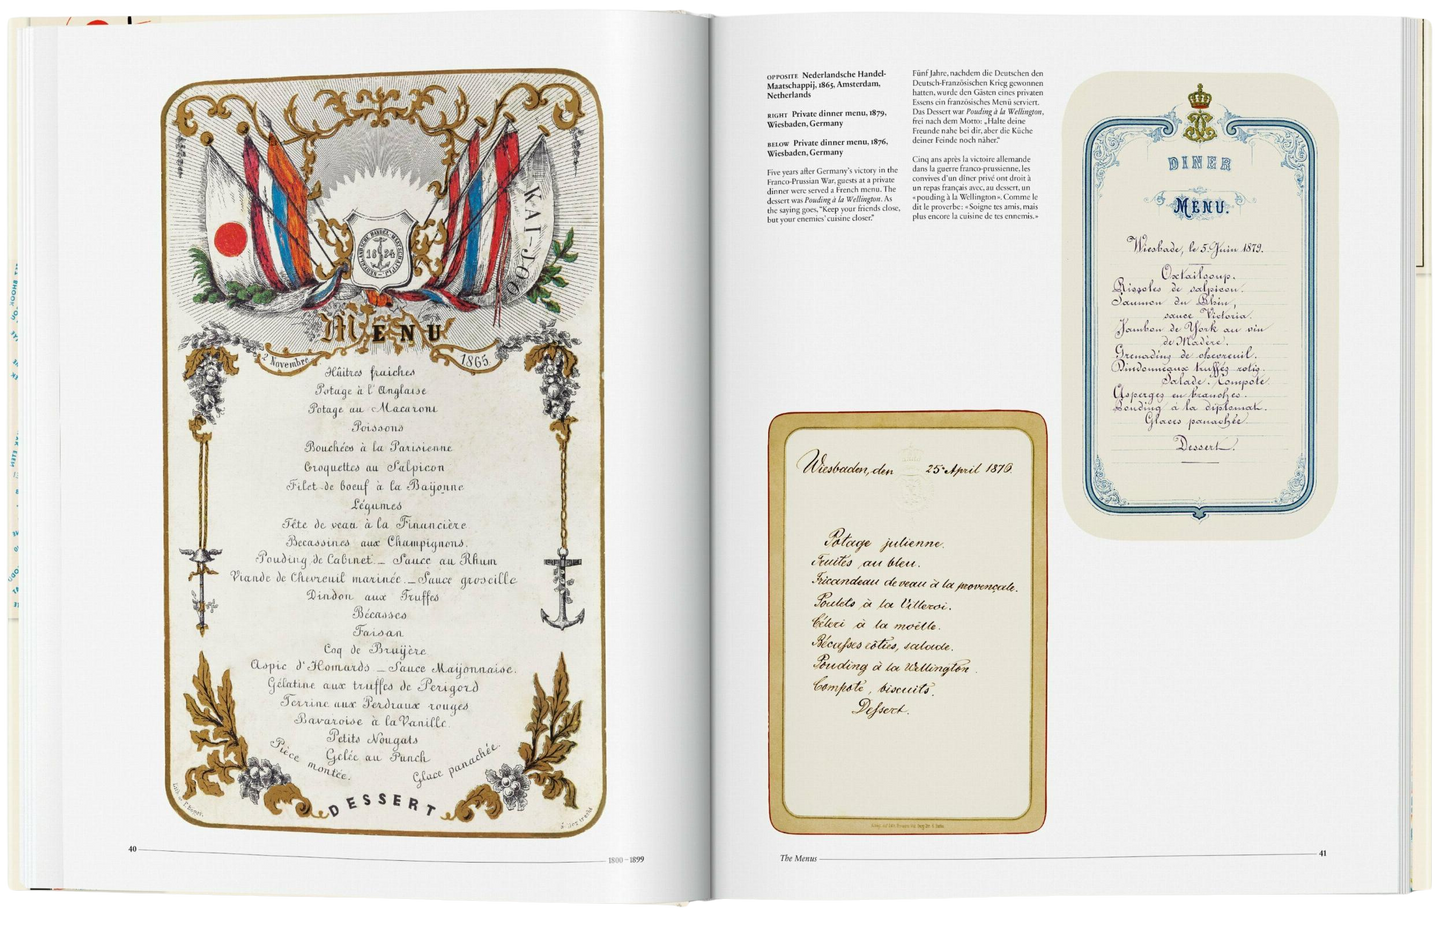 WAI-JOO
NEDERLANDSCHE HANDEL-MAATSCHAPPIJ
18 24
MENU
2 Novembre 1865
Hûitres fraiches
Potage à l'Anglaise
Potage au Macaroni
Poissons
Bouchées à la Parisienne
Croquettes au Salpicon
Filet de boeuf à la Baÿonne
Légumes
Tête de veau à la Financière
Becassines aux Champignons.
Pouding de Cabinet _ Sauce au Rhum
Viande de Chevreuil marinée _ Sauce groseille
Dindon aux Truffes
Bécasses
Faisan
Coq de Bruÿère
Aspic d'Homards _ Sauce Maÿonnaise.
Gélatine aux truffes de Perigord
Terrine aux Perdraux rouges
Bavaroise à la Vanille.
Petits Nougats
Gelée au Punch
Pièce montée.
Glace panachée.
DESSERT
40
1800–1899
OPPOSITE Nederlandsche Handel-
Maatschappij, 1865, Amsterdam,
Netherlands
RIGHT Private dinner menu, 1879,
Wiesbaden, Germany
BELOW Private dinner menu, 1876,
Wiesbaden, Germany
Five years after Germany's victory in the
Franco-Prussian War, guests at a private
dinner were served a French menu. The
dessert was Pouding à la Wellington. As
the saying goes, "Keep your friends close,
but your enemies' cuisine closer."
Fünf Jahre, nachdem die Deutschen den
Deutsch-Französischen Krieg gewonnen
hatten, wurde den Gästen eines privaten
Essens ein französisches Menü serviert.
Das Dessert war Pouding à la Wellington,
frei nach dem Motto: „Halte deine
Freunde nahe bei dir, aber die Küche
deiner Feinde noch näher."
Cinq ans après la victoire allemande
dans la guerre franco-prussienne, les
convives d'un dîner privé ont droit à
un repas français avec, au dessert, un
«pouding à la Wellington». Comme le
dit le proverbe: «Soigne tes amis, mais
plus encore la cuisine de tes ennemis.»
DINER
MENU.
Wiesbade, le 5 Juin 1879.
Oxtailsoup.
Rissoles de salpicon.
Saumon du Rhin,
sauce Victoria.
Jambon de York au vin
de Madère.
Grenadins de chevreuil.
Dindonneaux truffés rotis.
Salade. Compote
Asperges en branches.
Pouding à la diplomat.
Glaces panachée.
Dessert.
Wiesbaden, den 25 April 1876.
Potage julienne.
Truites au bleu.
Fricandeau de veau à la provençale.
Poulets à la Villeroi.
Céleri à la moëlle.
Bécasses rôties, salade.
Pouding à la Wellington.
Compote, biscuits.
Dessert.
The Menus
41